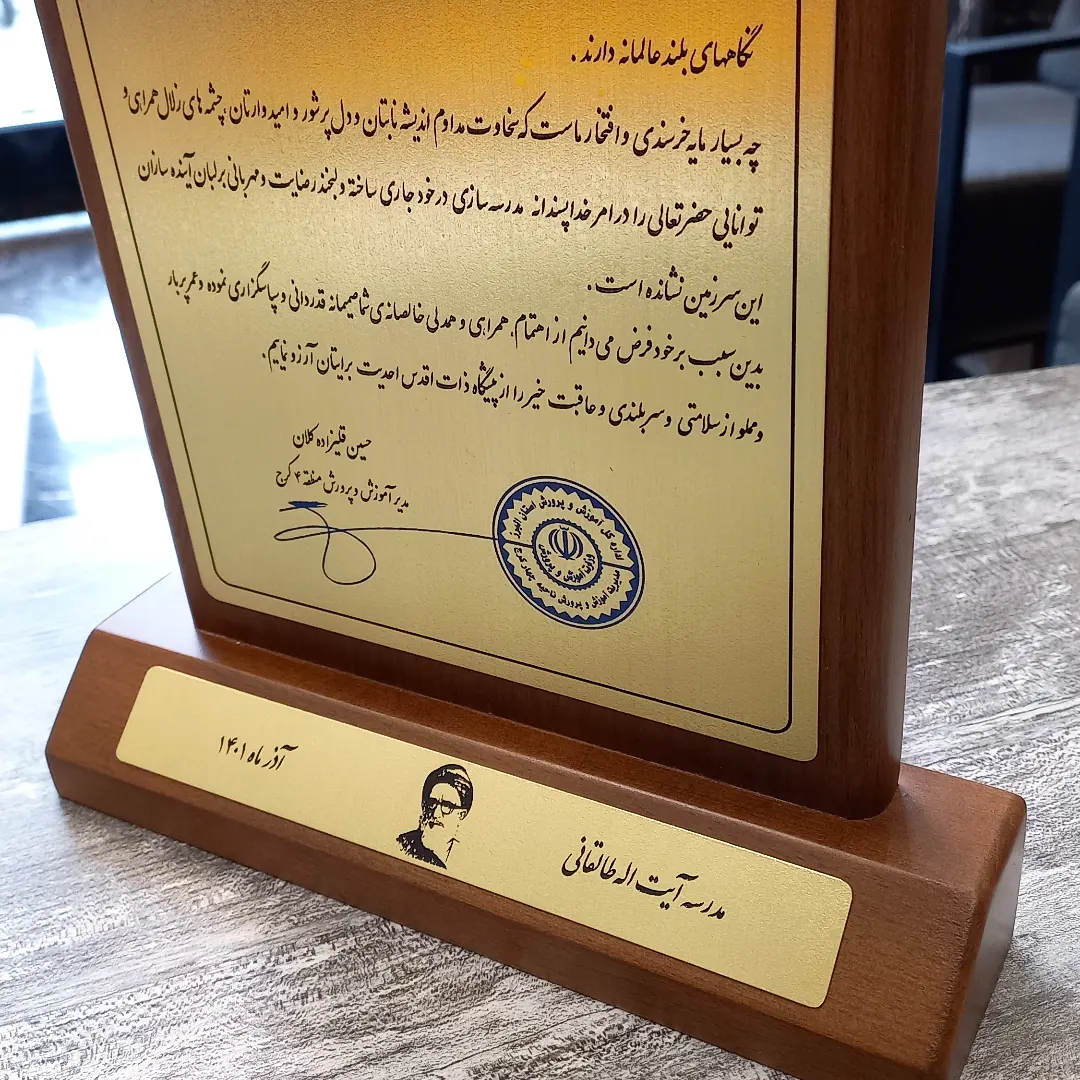 نگاههای بلند عالمانه دارند .
چه بسیار مایه خرسندی و افتخار ماست که سخاوت مداوم اندیشه تابتان و دل پرشور و امیدوارتان ، چشمه های زلال همراهی و
توانایی حضرتعالی را در امر خداپسندانه مدرسه سازی در خود جاری ساخته و لبخند رضایت و مهربانی بر لبان آینده سازان
این سرزمین نشانده است .
بدین سبب بر خود فرض می دانیم از اهتمام، همراهی و همدلی خالصانه ی شما صمیمانه قدردانی و سپاسگزاری نموده و عمر پربار
و مملو از سلامتی و سربلندی و عاقبت خیر را از پیشگاه ذات اقدس احدیت برایتان آرزو نماییم .
حسین قلیزاده کلان
مدیر آموزش و پرورش منطقه ۴ کرج
اداره کل آموزش و پرورش استان البرز
وزارت آموزش و پرورش
مدیریت آموزش و پرورش ناحیه چهار کرج
مدرسه آیت اله طالقانی
آذر ماه ۱۴۰۱